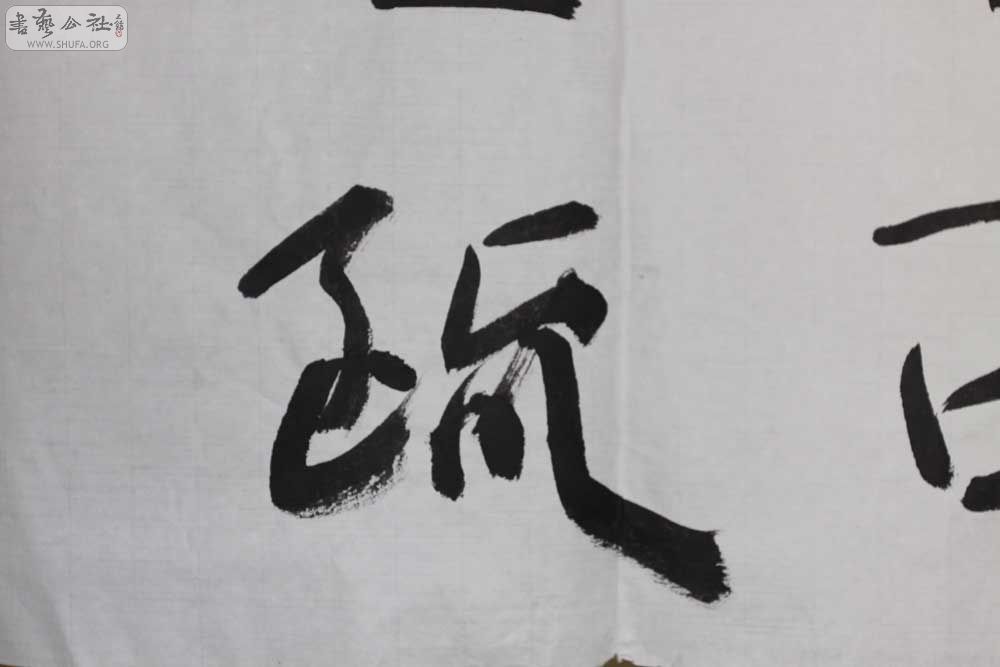 書藝公社
WWW.SHUFA.ORG
疏